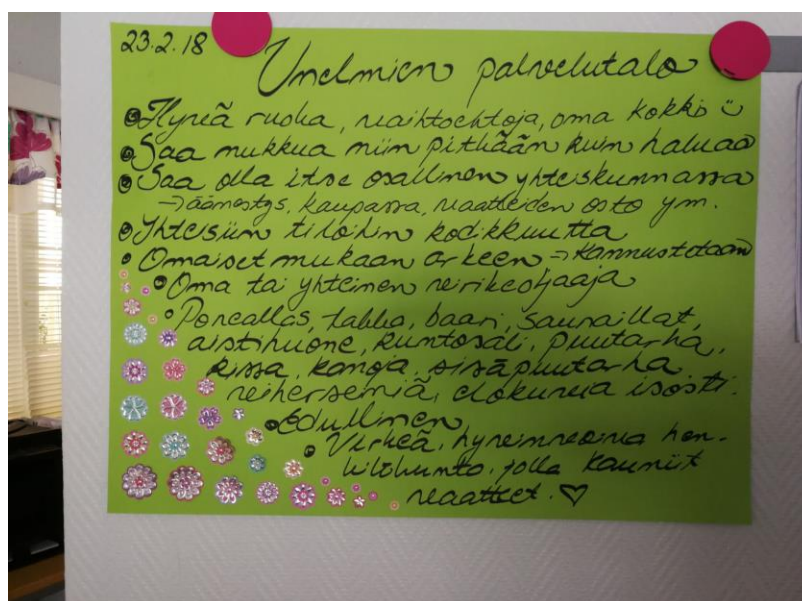 23.2.18
Unelmien palvelutalo
Hyvää ruoka, vaihtoehtoja, oma kokki
Saa nukkua niin pitkään kuin haluaa
Saa olla itse osallinen yhteiskunnassa
→ äänestys, kaupassa, vaatteiden osto ym.
Yhteisiin tiloihin kodikkuutta
Omaiset mukaan arkeen → Kannustetaan
Oma tai yhteinen virikeohjaaja
Poreallas, takka, baari, saunaillat,
aistihuone, kuntosali, puutarha,
kissa, kanoja, sisäpuutarha
viherseiniä, elokuvia isosti.
Edullinen
Virkeä, hyvinvoiva hen-
kilökunta, jolla kauniit
vaatteet. ♡